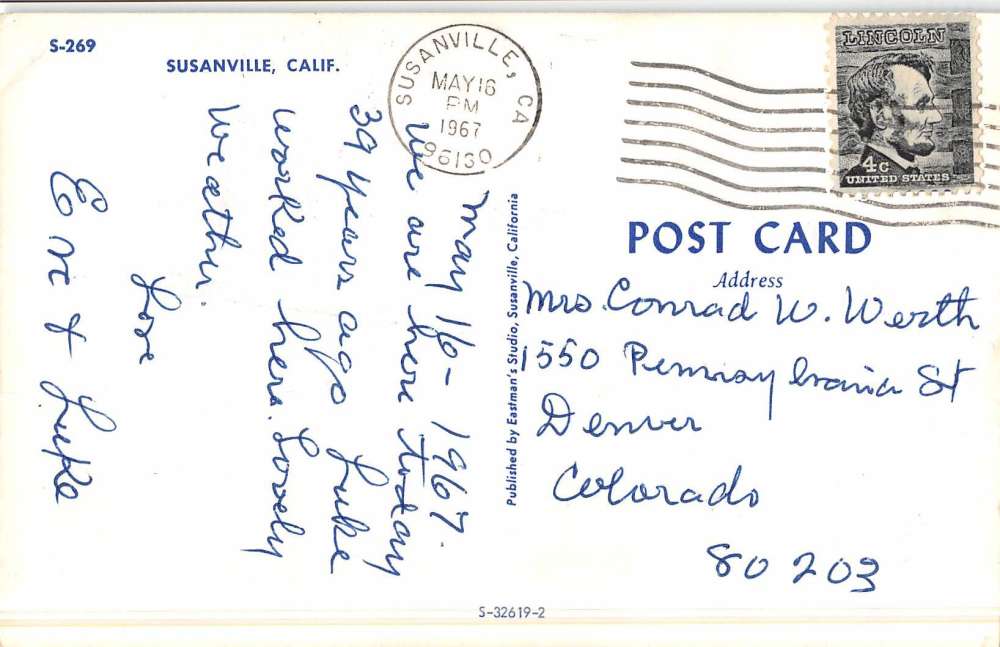 S-269
SUSANVILLE, CALIF.
SUSANVILLE, CA
MAY 16
PM
1967
96130
LINCOLN
4c
UNITED STATES
May 16 - 1967.
We are here today
39 years ago Luke
worked here. Lovely
weather.
Love
& Luke
Published by Eastman's Studio, Susanville, California
POST CARD
Address
Mrs. Conrad W. Werth
1550 Pennsylvania St
Denver
Colorado
80203
S-32619-2